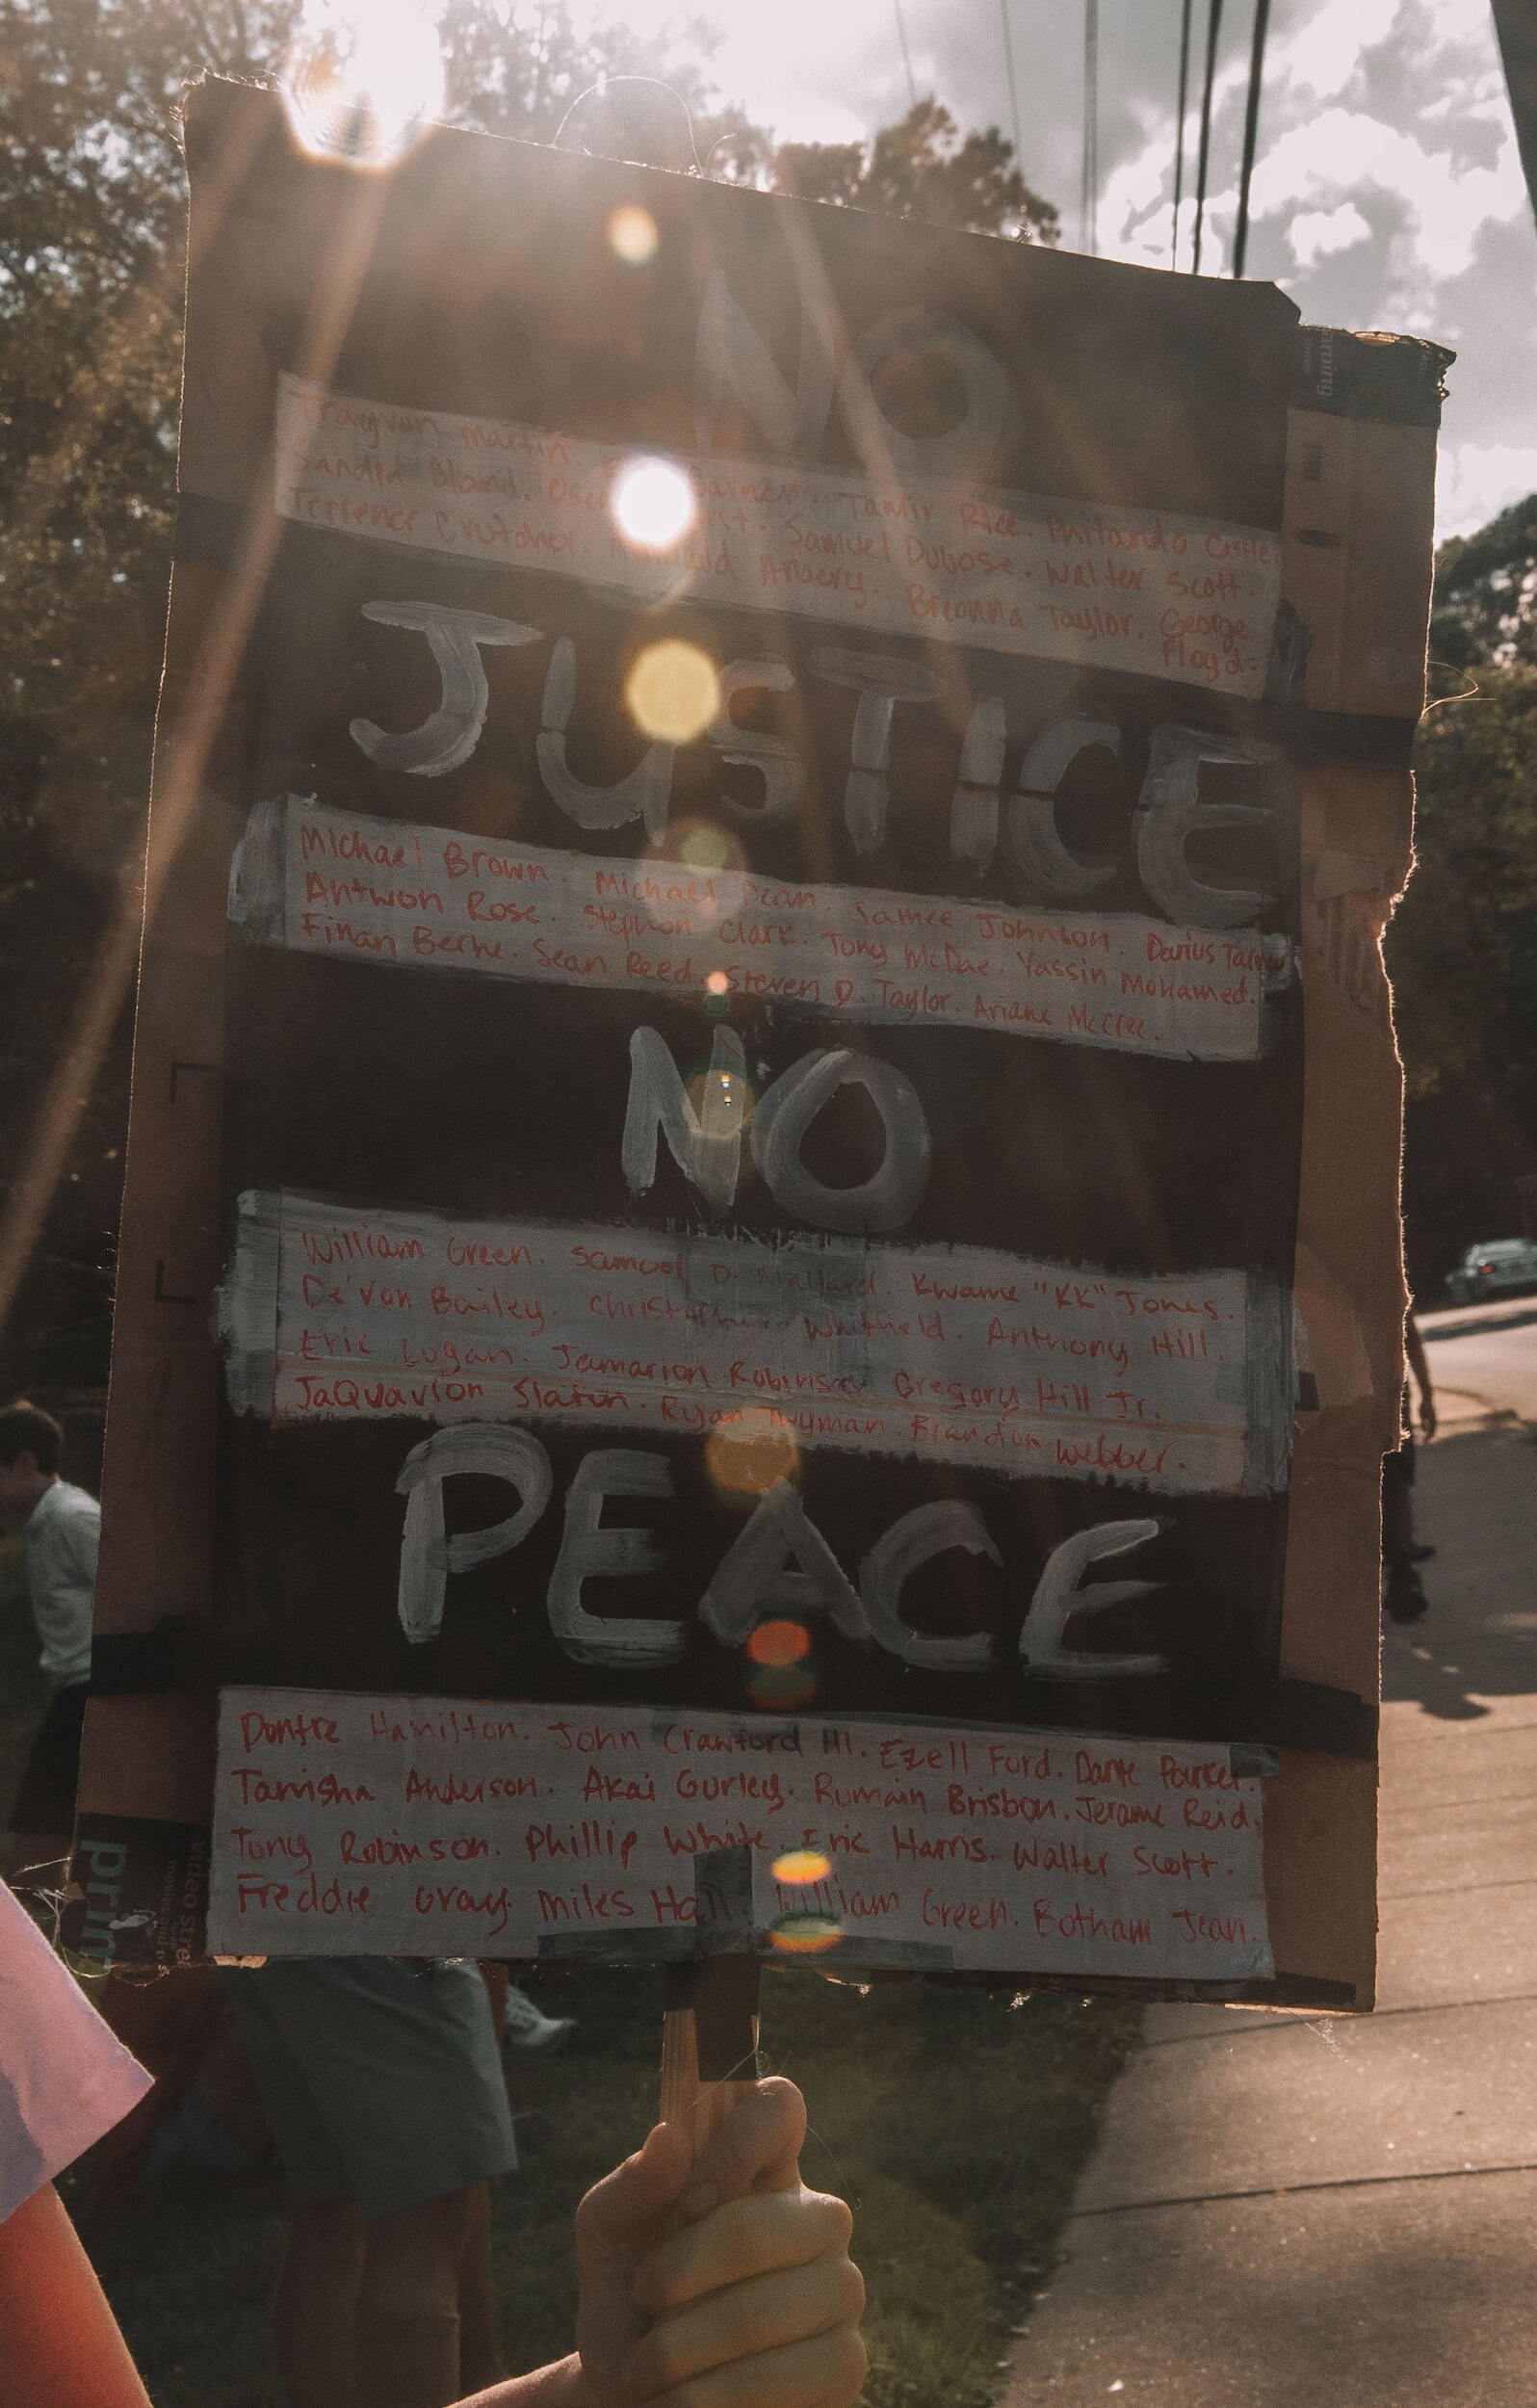 NO
Trayvon Martin. Garner. Tamir Rice. Philando Castile.
Sandra Bland. Samuel Dubose. Walter Scott.
Terrence Crutcher. Arbery. Breonna Taylor. George
Floyd.
JUSTICE
Michael Brown. Michael Dean. Samee Johnson. Darius
Antwon Rose. Stephon Clark. Tony McDae. Yassin Mohamed.
Finan Berhe. Sean Reed. Steven D. Taylor. Ariane McCree.
NO
William Green. Samuel D. Mallard. Kwame "KK" Jones.
De'Von Bailey. Whitfield. Anthony Hill.
Eric Logan. Jamarion Robinson. Gregory Hill Jr.
JaQuavion Slaton. Ryan Twyman. Brandon Webber.
PEACE
Dontre Hamilton. John Crawford III. Ezell Ford. Dante Parker.
Tanisha Anderson. Akai Gurley. Rumain Brisbon. Jerame Reid.
Tony Robinson. Phillip White. Eric Harris. Walter Scott.
Freddie Gray. Miles Hall William Green. Botham Jean.